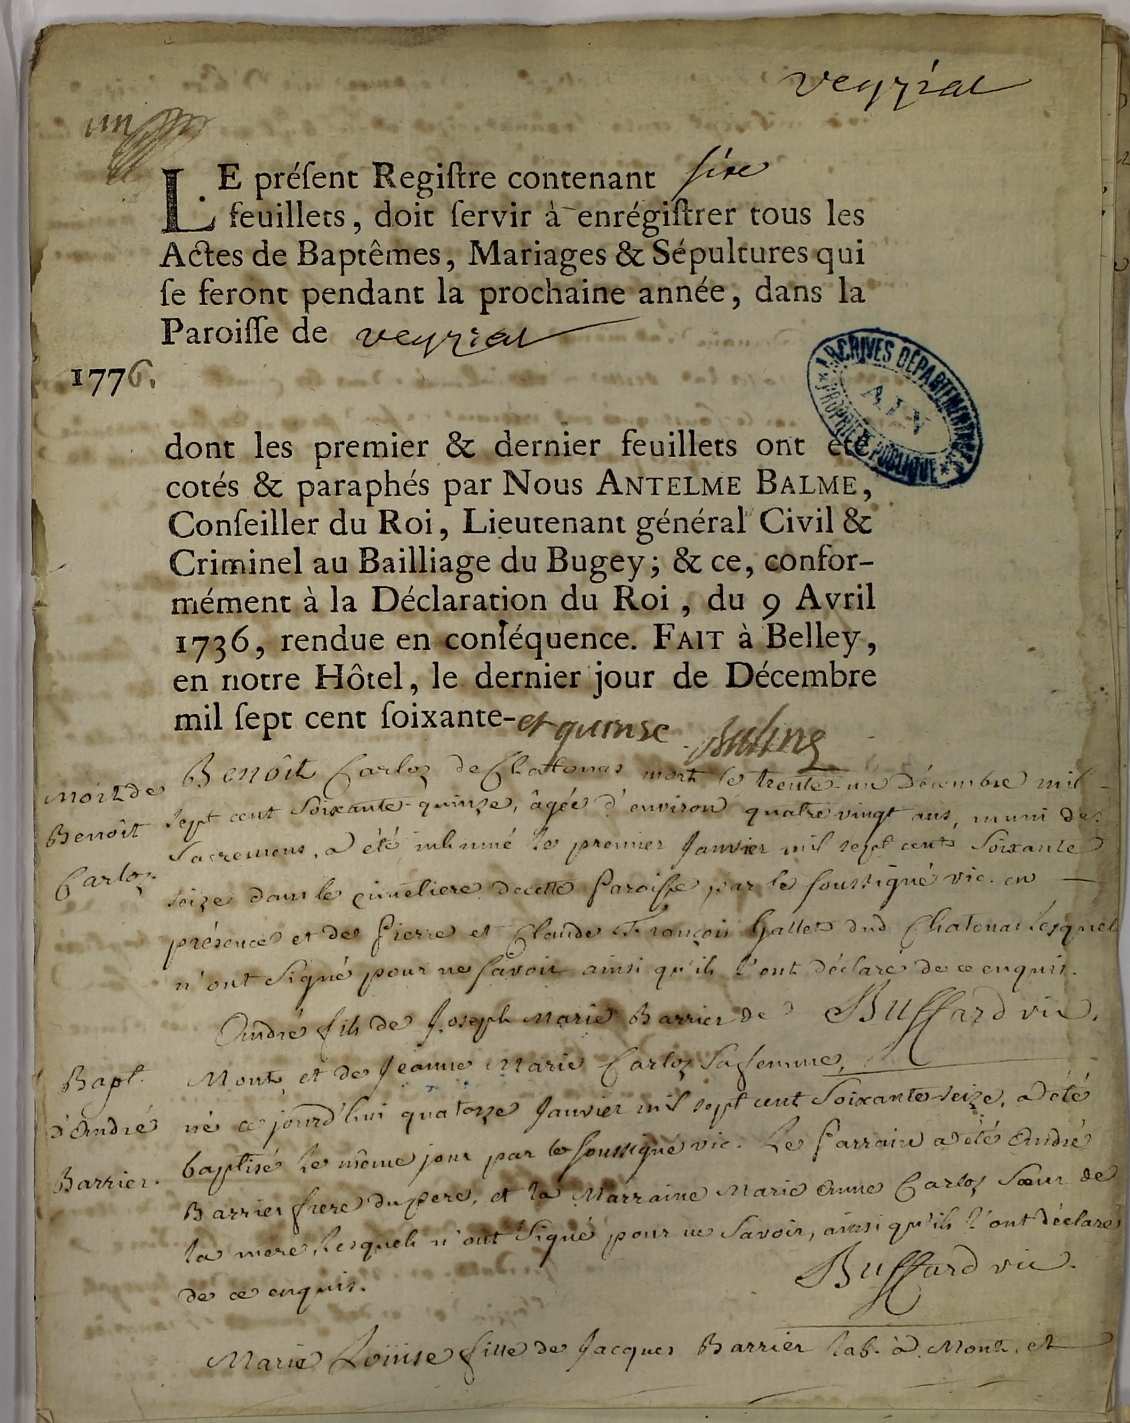 Veyziat
un
LE préſent Regiſtre contenant six
feuillets, doit ſervir à enrégiſtrer tous les
Actes de Baptêmes, Mariages & Sépultures qui
ſe feront pendant la prochaine année, dans la
Paroiſſe de veyziat
1776.
ARCHIVES DÉPARTEMENTALES
AIN
PROPRIÉTÉ PUBLIQUE
dont les premier & dernier feuillets ont été
cotés & paraphés par Nous ANTELME BALME,
Conſeiller du Roi, Lieutenant général Civil &
Criminel au Bailliage du Bugey; & ce, confor-
mément à la Déclaration du Roi, du 9 Avril
1736, rendue en conſéquence. FAIT à Belley,
en notre Hôtel, le dernier jour de Décembre
mil ſept cent ſoixante-et quinse Balme
Mort de
Benoît
Carloz.
Benoît Carloz de Chatonas mort le trente-un Décembre mil
sept cent Soixante-quinze, âgée d'environ quatre vingt ans, muni des
Sacremens, a été inhumé le premier Janvier mil sept cent Soixante
seize dans le cimetiere de cette Paroisse par le soussigné vic. en
présence et de Pierre et Claude François Gallet dud Chatonas lesquels
n'ont Signé pour ne savoir ainsi qu'ils l'ont déclaré de ce enquis.
Buffard vic.
Bapt.
d'André
Barrier.
André fils de Joseph Marie Barrier de
Mont, et de Jeanne Marie Carloz sa femme,
né ce jourd'hui quatorze Janvier mil sept cent Soixante-seize, a été
baptisé le même jour par le soussigné vic. Le Parrain a été André
Barrier frere du pere, et la Marraine Marie Anne Carloz Sœur de
la mere, lesquels n'ont Signé pour ne savoir, ainsi qu'ils l'ont déclaré
de ce enquis.
Buffard vic.
Marie Loüise fille de Jacques Barrier lab. à Mont, et